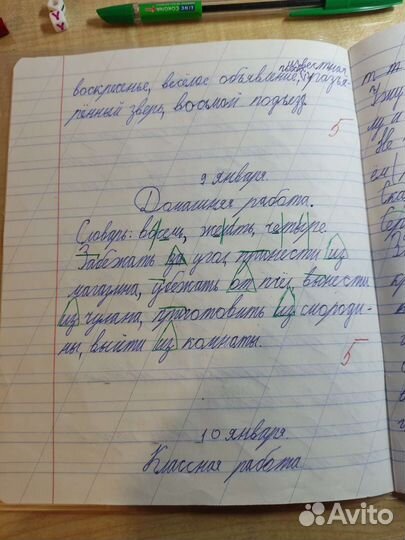 известная
воскресенье, весёлое объявление, разъя-
рённый зверь, восьмой подъезд
5
9 января.
Домашняя работа.
Словарь: восем, жевать, четыре.
Забежать за угол, принести из
магазина, убежать от пчёл, вынести
из чулана, приготовить из смороди-
ны, выйти из комнаты.
5
10 января.
Классная работа
LINE CORONA
Y
Avito